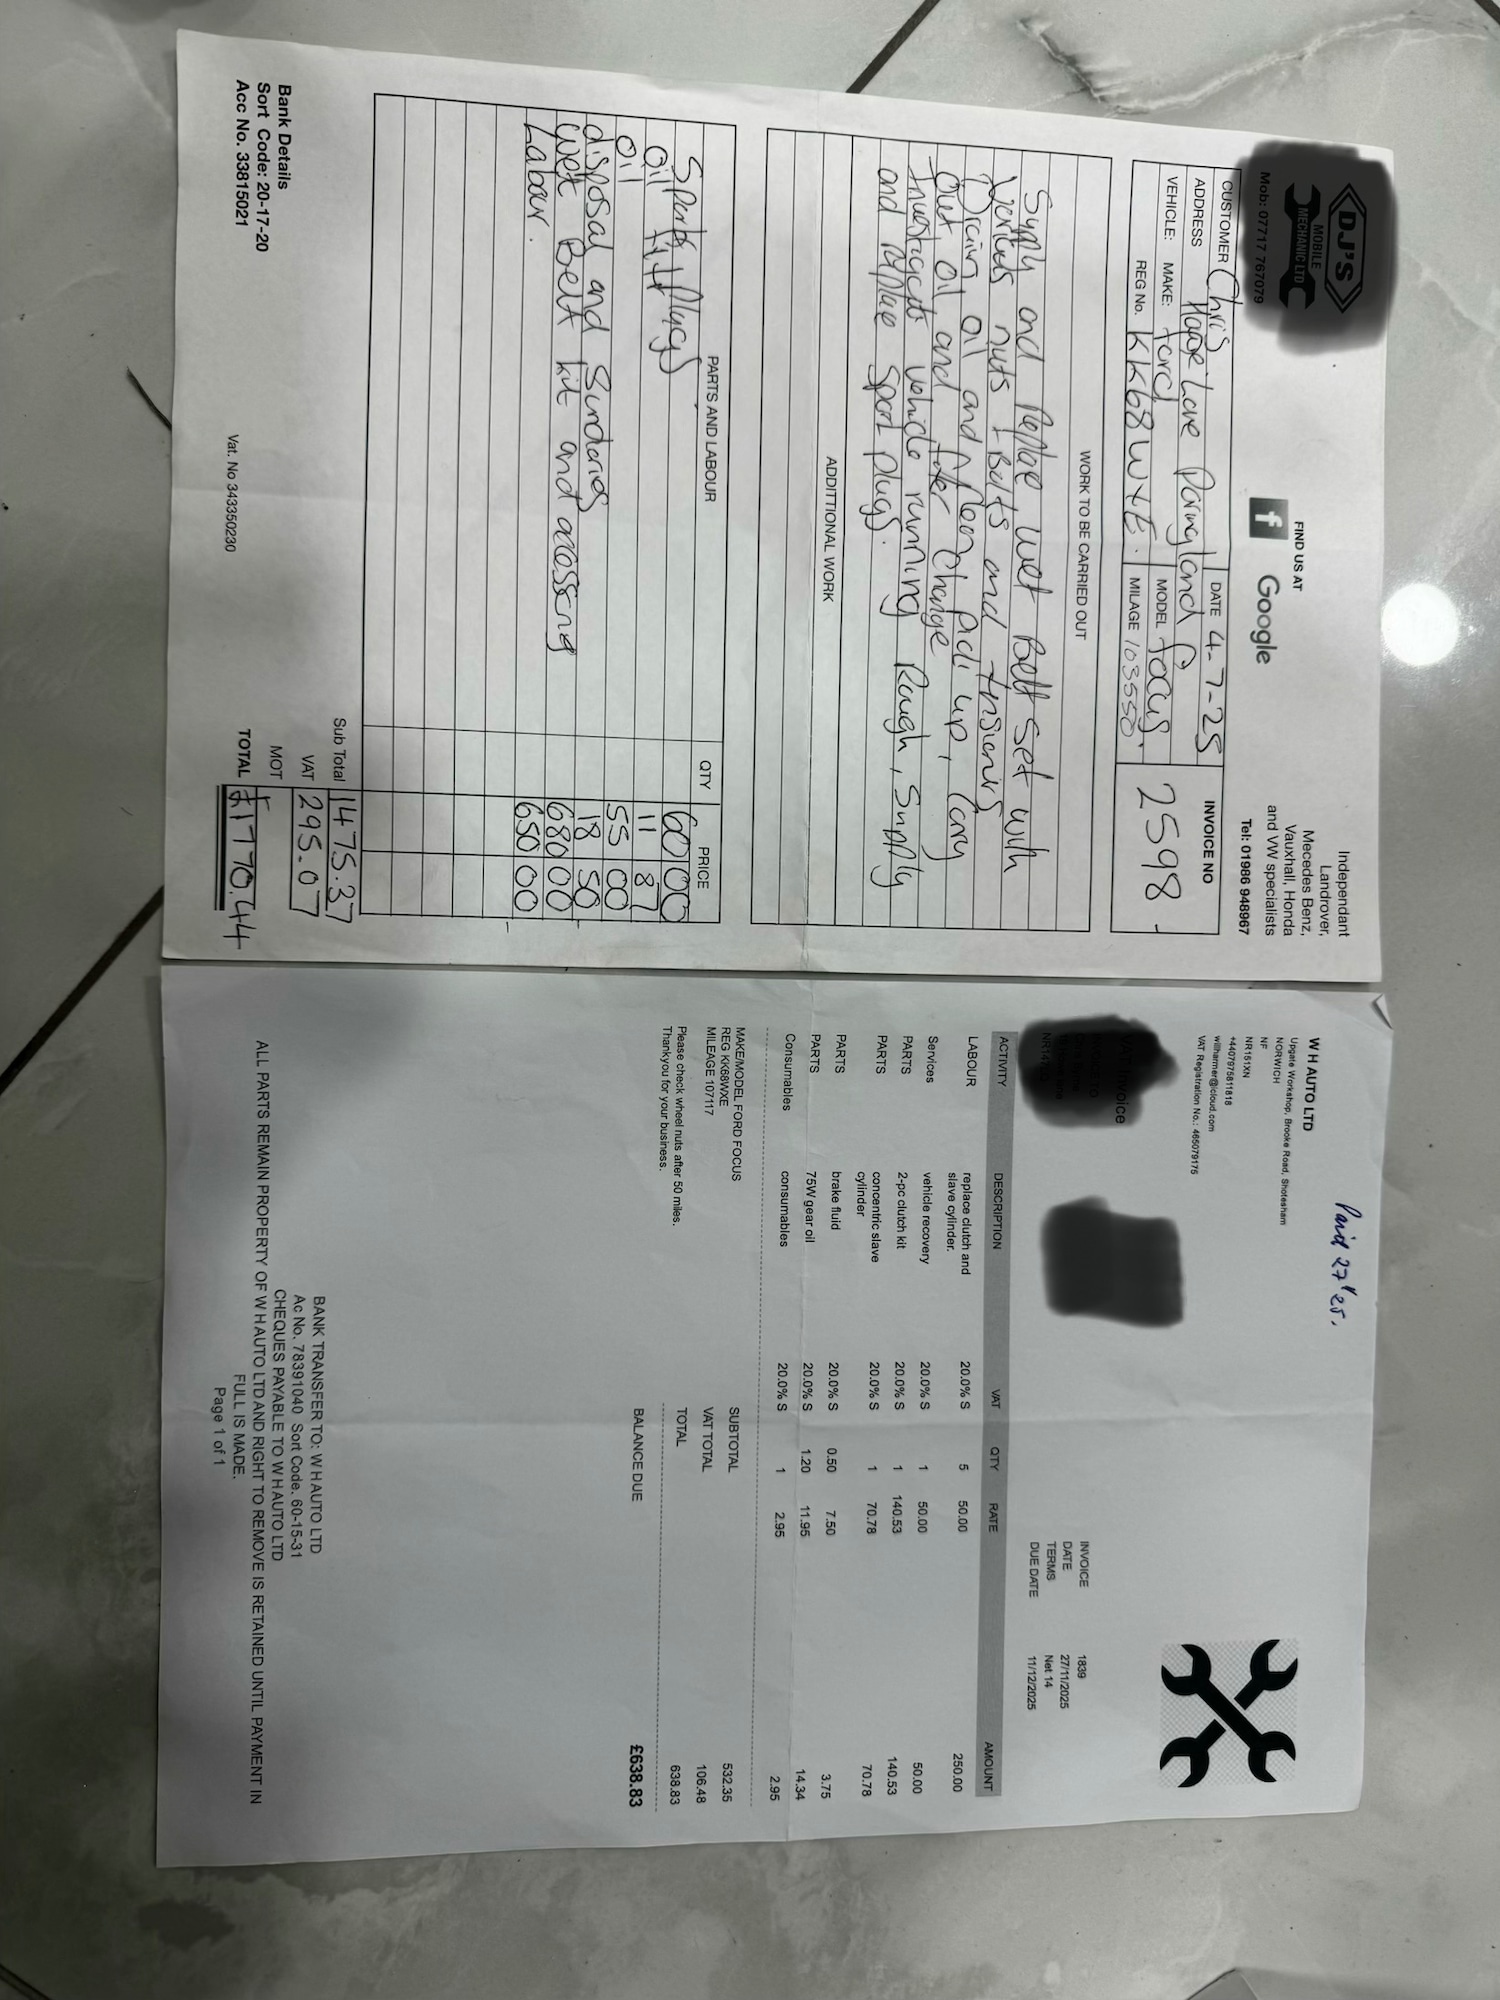 DJ'S
MOBILE
MECHANIC LTD
Mob: 07717 767079
FIND US AT
f Google
Independant
Landrover,
Mecedes Benz,
Vauxhall, Honda
and VW specialists
Tel: 01986 948967
CUSTOMER Chris DATE 4-7-25 INVOICE NO
ADDRESS Lane Poringland
VEHICLE: MAKE: ford MODEL focus. 2598
REG No. KK68WXE. MILAGE 103550
WORK TO BE CARRIED OUT
Supply and Replace wet Belt set with
Various nuts + Bolts and
Drain oil and clean pick up, Carry
out oil and filter change
Investigate vehicle running Rough, Supply
and replace spark plugs.
ADDITTIONAL WORK
PARTS AND LABOUR QTY PRICE
Spark Plugs 60 00
oil filt 11 87
oil 55 00
disposal and Sundaries 18 50
wet Belt kit and accessorys 680 00
Labour. 650 00
Sub Total 1475.37
VAT 295.07
MOT
TOTAL £1770.44
Bank Details
Sort Code: 20-17-20
Acc No. 33815021
Vat. No 343350230
Paid 27'25.
W H AUTO LTD
Upgate Workshop, Brooke Road, Shotesham
NORWICH
NF
NR151XN
+4407975811818
willharmer@icloud.com
VAT Registration No.: 465079175
VAT Invoice
INVOICE TO
INVOICE 1839
DATE 27/11/2025
TERMS Net 14
DUE DATE 11/12/2025
ACTIVITY DESCRIPTION VAT QTY RATE AMOUNT
LABOUR replace clutch and slave cylinder. 20.0% S 5 50.00 250.00
Services vehicle recovery 20.0% S 1 50.00 50.00
PARTS 2-pc clutch kit 20.0% S 1 140.53 140.53
PARTS concentric slave cylinder 20.0% S 1 70.78 70.78
PARTS brake fluid 20.0% S 0.50 7.50 3.75
PARTS 75W gear oil 20.0% S 1.20 11.95 14.34
Consumables consumables 20.0% S 1 2.95 2.95
MAKE/MODEL FORD FOCUS
REG KK68WXE
MILEAGE 107117
Please check wheel nuts after 50 miles.
Thankyou for your business.
SUBTOTAL 532.35
VAT TOTAL 106.48
TOTAL 638.83
BALANCE DUE £638.83
BANK TRANSFER TO: W H AUTO LTD
Ac No. 78391040 Sort Code. 60-15-31
CHEQUES PAYABLE TO W H AUTO LTD
ALL PARTS REMAIN PROPERTY OF W H AUTO LTD AND RIGHT TO REMOVE IS RETAINED UNTIL PAYMENT IN
FULL IS MADE.
Page 1 of 1